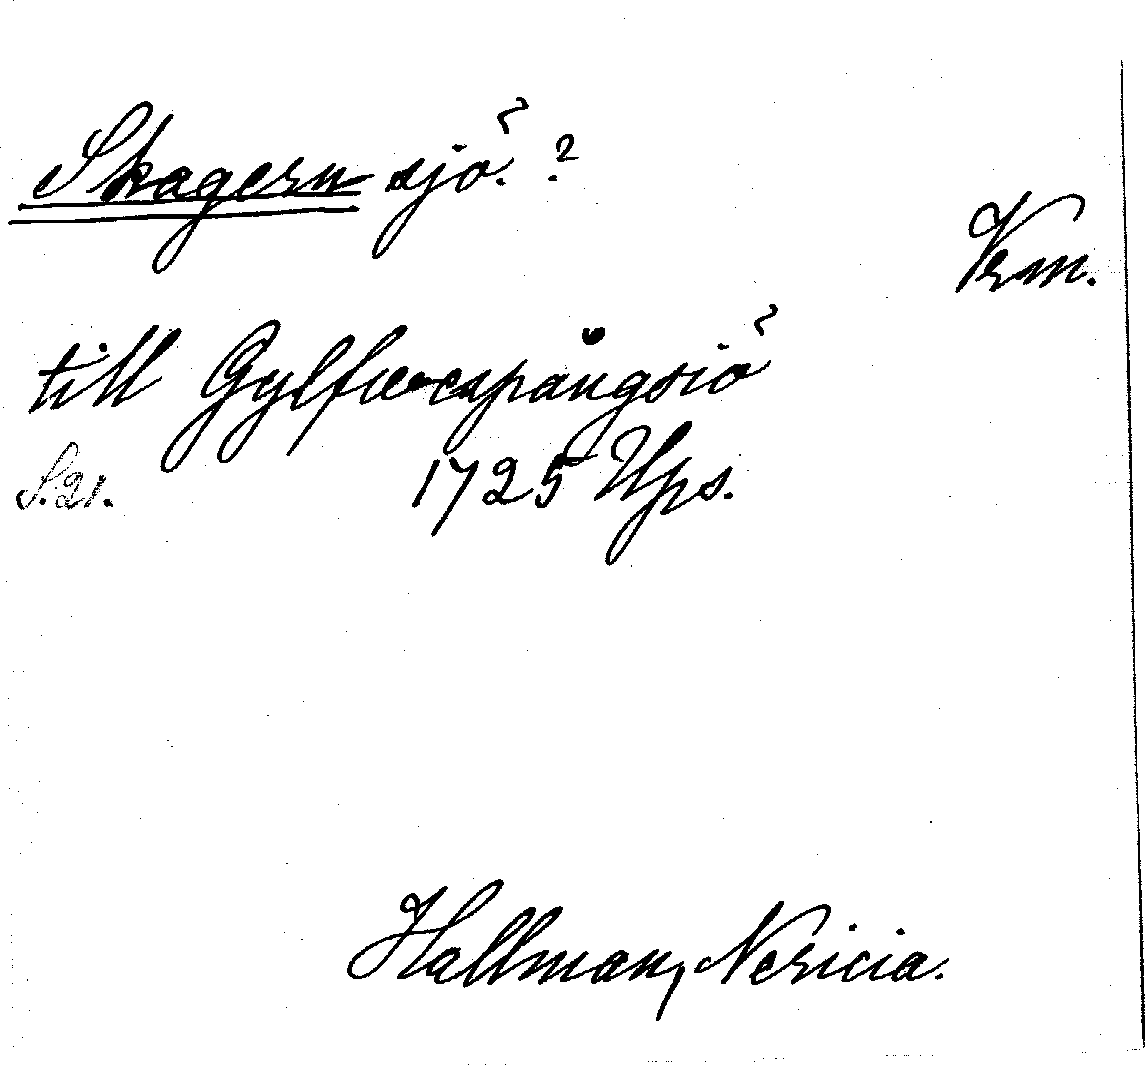 Skagern sjö. ?
Vrm.
till Gylfwespångsiö
S. 21. 1725 Ups.
Hallman, Nericia.